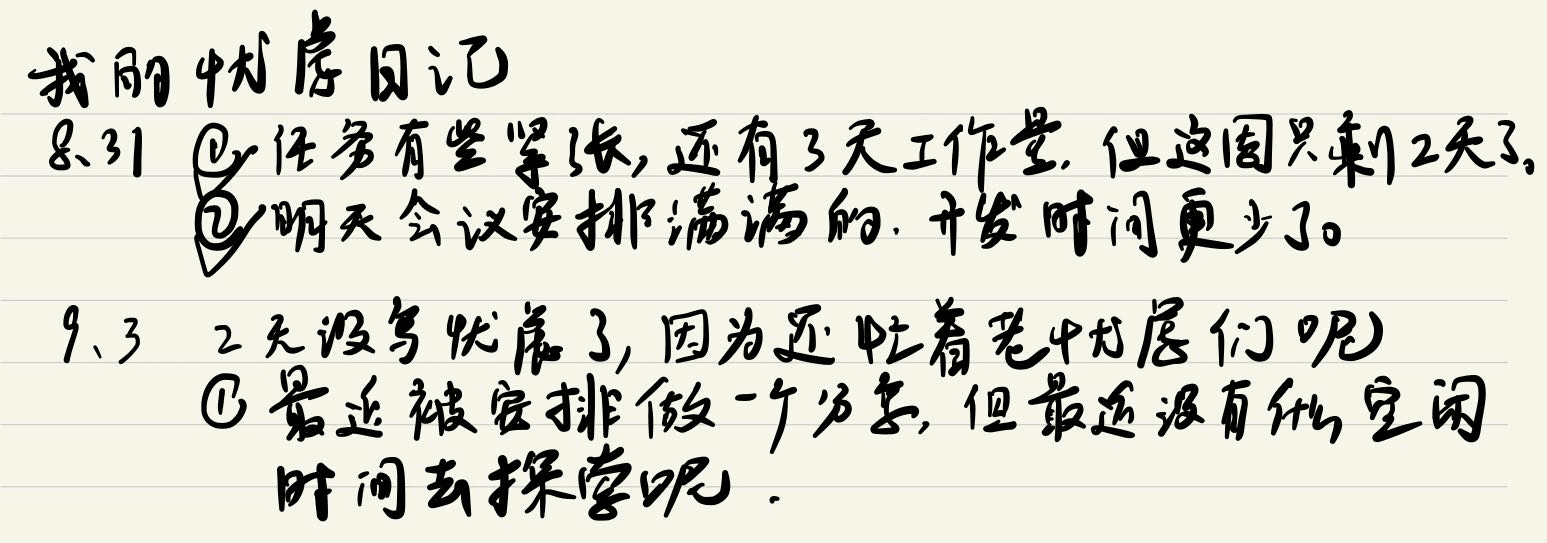 我的忧虑日记
8.31 ① 任务有些紧张,还有3天工作量.但这周只剩2天了。
② 明天会议安排满满的.开发时间更少了。
9、3 2天没写忧虑了,因为还忙着老忧虑们呢
① 最近被安排做一个方案,但最近没有什么空闲
时间去探索呢.